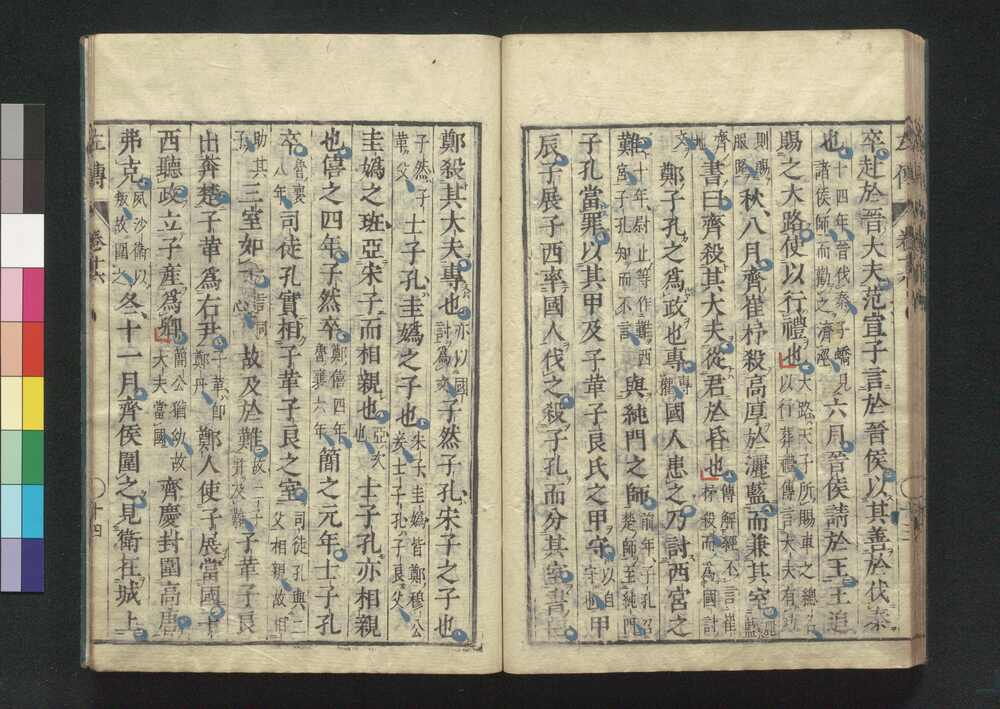 左傳 卷十六
卒赴於晉大夫范宣子言於晉侯以其善於伐秦
也十四年晉伐秦子蟜見諸侯師而勸之濟涇六月晉侯請於王王追
賜之大路使以行禮也大路天子所賜車之總名以行葬禮傳言大夫有功
則賜服路秋八月齊崔杼殺高厚於灑藍而兼其室灑藍
齊地書曰齊殺其大夫從君於昏也傳解經不言崔杼殺而爲國討
文鄭子孔之爲政也專專權國人患之乃討西宮之
難十年尉止等作難西宮子孔知而不言與純門之師前年子孔召楚師至純門
子孔當罪以其甲及子革子良氏之甲守以自守也甲
辰子展子西率國人伐之殺子孔而分其室書曰
鄭殺其大夫專也亦以國討爲文子然子孔宋子之子也
子然子革父士子孔圭嬀之子也宋子圭嬀皆鄭穆公妾士子孔子良父
圭嬀之班亞宋子而相親也亞次也士子孔亦相親
也僖之四年子然卒鄭僖四年魯襄六年簡之元年士子孔
卒魯襄八年司徒孔實相子革子良之室司徒孔與二父相親故相
助其子三室如一言同心故及於難故二子并及難子革子良
出奔楚子革爲右尹子革即鄭丹鄭人使子展當國子
西聽政立子產爲卿簡公猶幼故大夫當國齊慶封圍高唐
弗克夙沙衛以叛故圍之冬十一月齊侯圍之見衛在城上
左傳 卷十六 十四